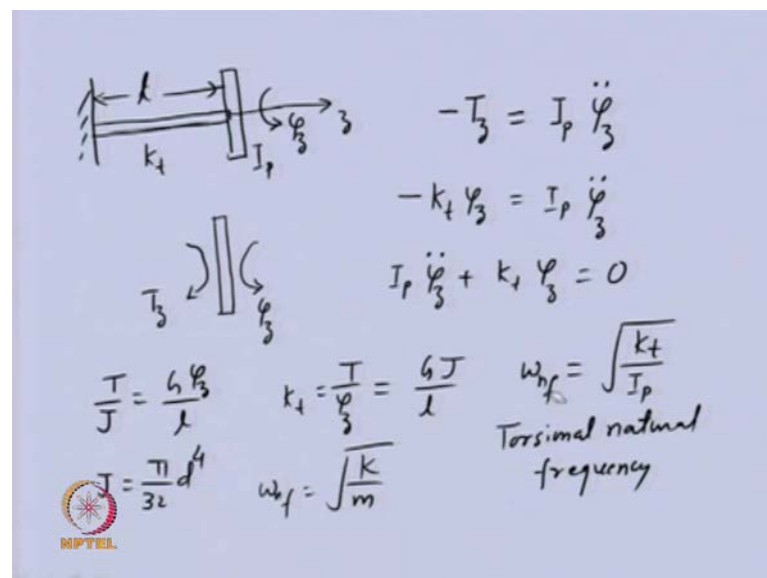 l
φz z
kt Ip
-Tz = Ip φ̈z
-kt φz = Ip φ̈z
Tz φz
Ip φ̈z + kt φz = 0
T/J = Gφz/l
kt = T/φz = GJ/l
ωnf = √(kt/Ip)
Torsimal natural
frequency
J = π/32 d⁴
ωnf = √(k/m)
NPTEL